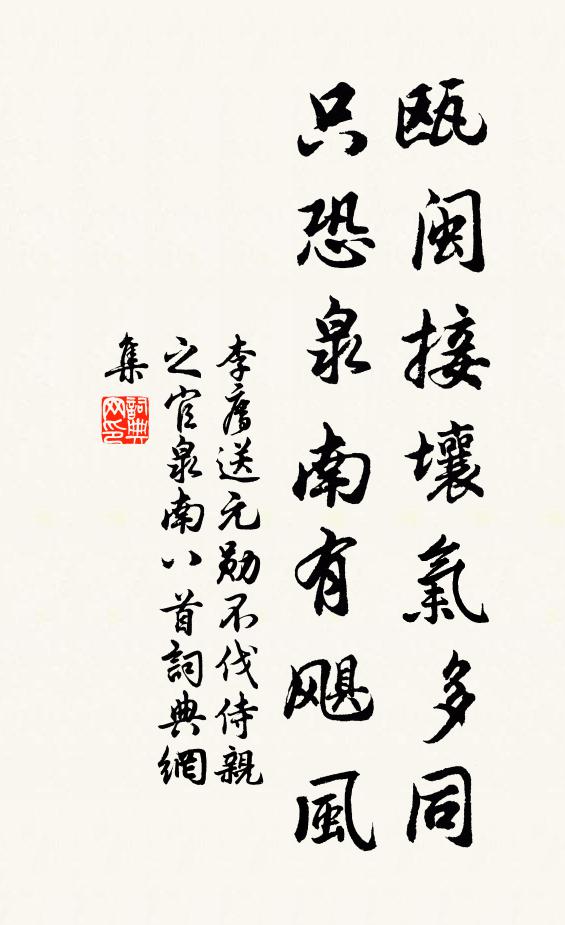 甌閩接壤氣多同
只恐泉南有颶風
李廌送元勛不伐侍親
之官泉南八首詞典網
集
詞典
网印